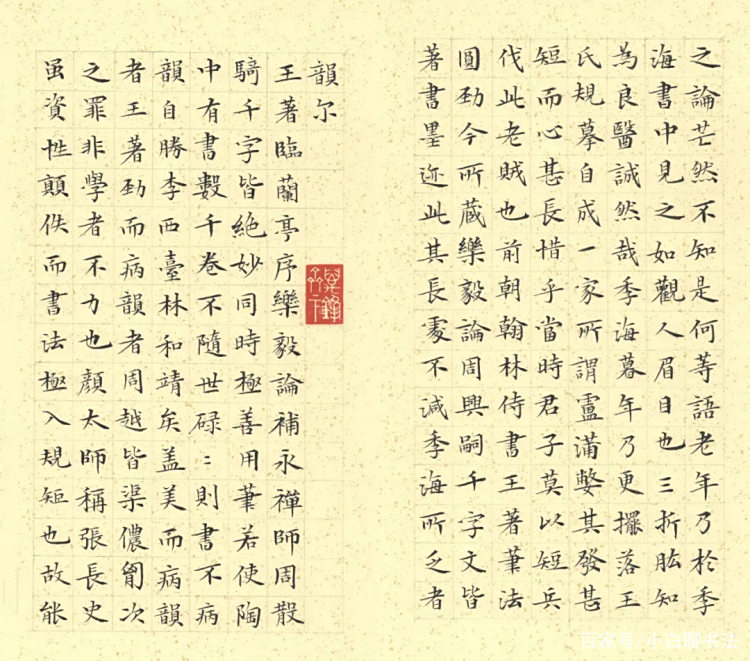 之論芒然不知是何等語老年乃於季
海書中見之如觀人眉目也三折肱知
為良醫誠然哉季海暮年乃更擺落王
氏規摹自成一家所謂盧蒲嫳其發甚
短而心甚長惜乎當時君子莫以短兵
伐此老賊也前朝翰林侍書王著筆法
圓劲今所蔵樂毅論周興嗣千字文皆
著書墨迹此其長處不減季海所乏者
韻尔
王著臨蘭亭序樂毅論補永禪師周散
騎千字皆絶妙同時極善用筆若使陶
中有書數千卷不隨世碌：則書不病
韻自勝李西臺林和靖矣盖美而病韻
者王著劲而病韻者周越皆渠儂胷次
之罪非學者不力也顏太師稱張長史
虽資性顛佚而書法極入規矩也故能
百家号/小白聊书法